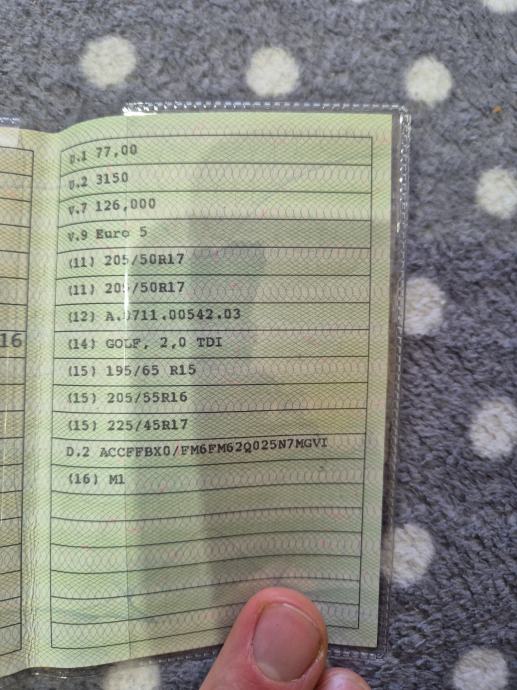 U.1 77,00
U.2 3150
V.7 126,000
V.9 Euro 5
(11) 205/50R17
(11) 205/50R17
(12) A.0711.00542.03
16
(14) GOLF, 2,0 TDI
(15) 195/65 R15
(15) 205/55R16
(15) 225/45R17
D.2 ACCFFBX0/FM6FM62Q025N7MGVI
(16) M1